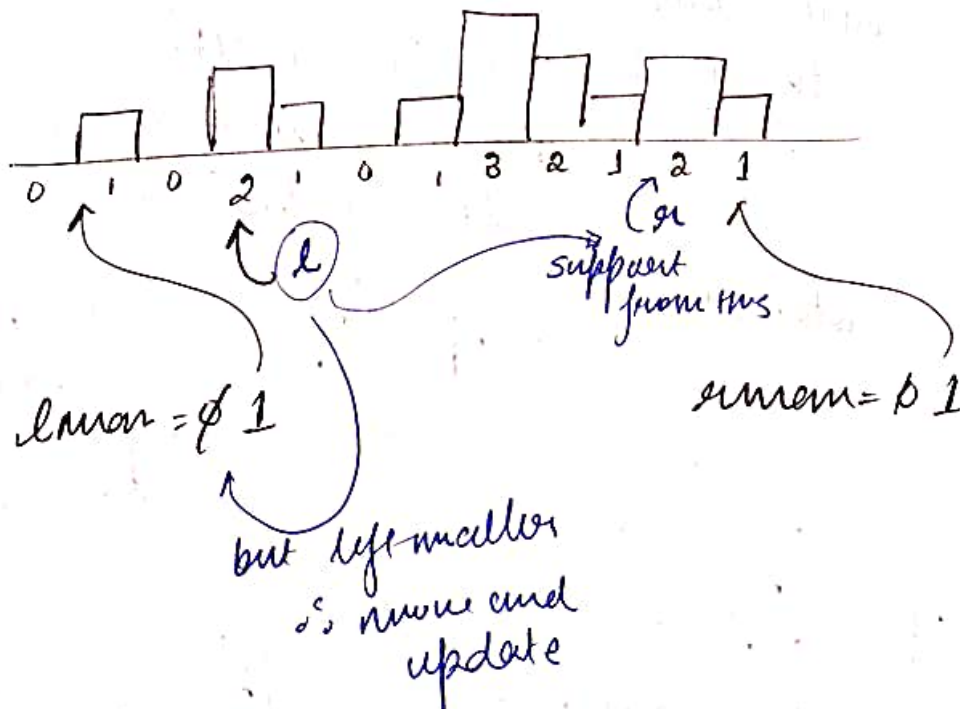 0 1 0 2 1 0 1 3 2 1 2 1
l r
support
from this
lmax = 0 1
rmax = 0 1
but left smaller
∴ move and
update